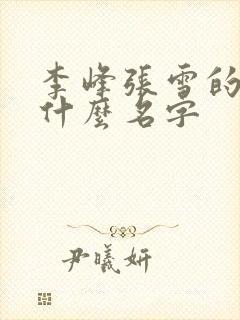 李峰張雪的
什麼名字
尹曦妍